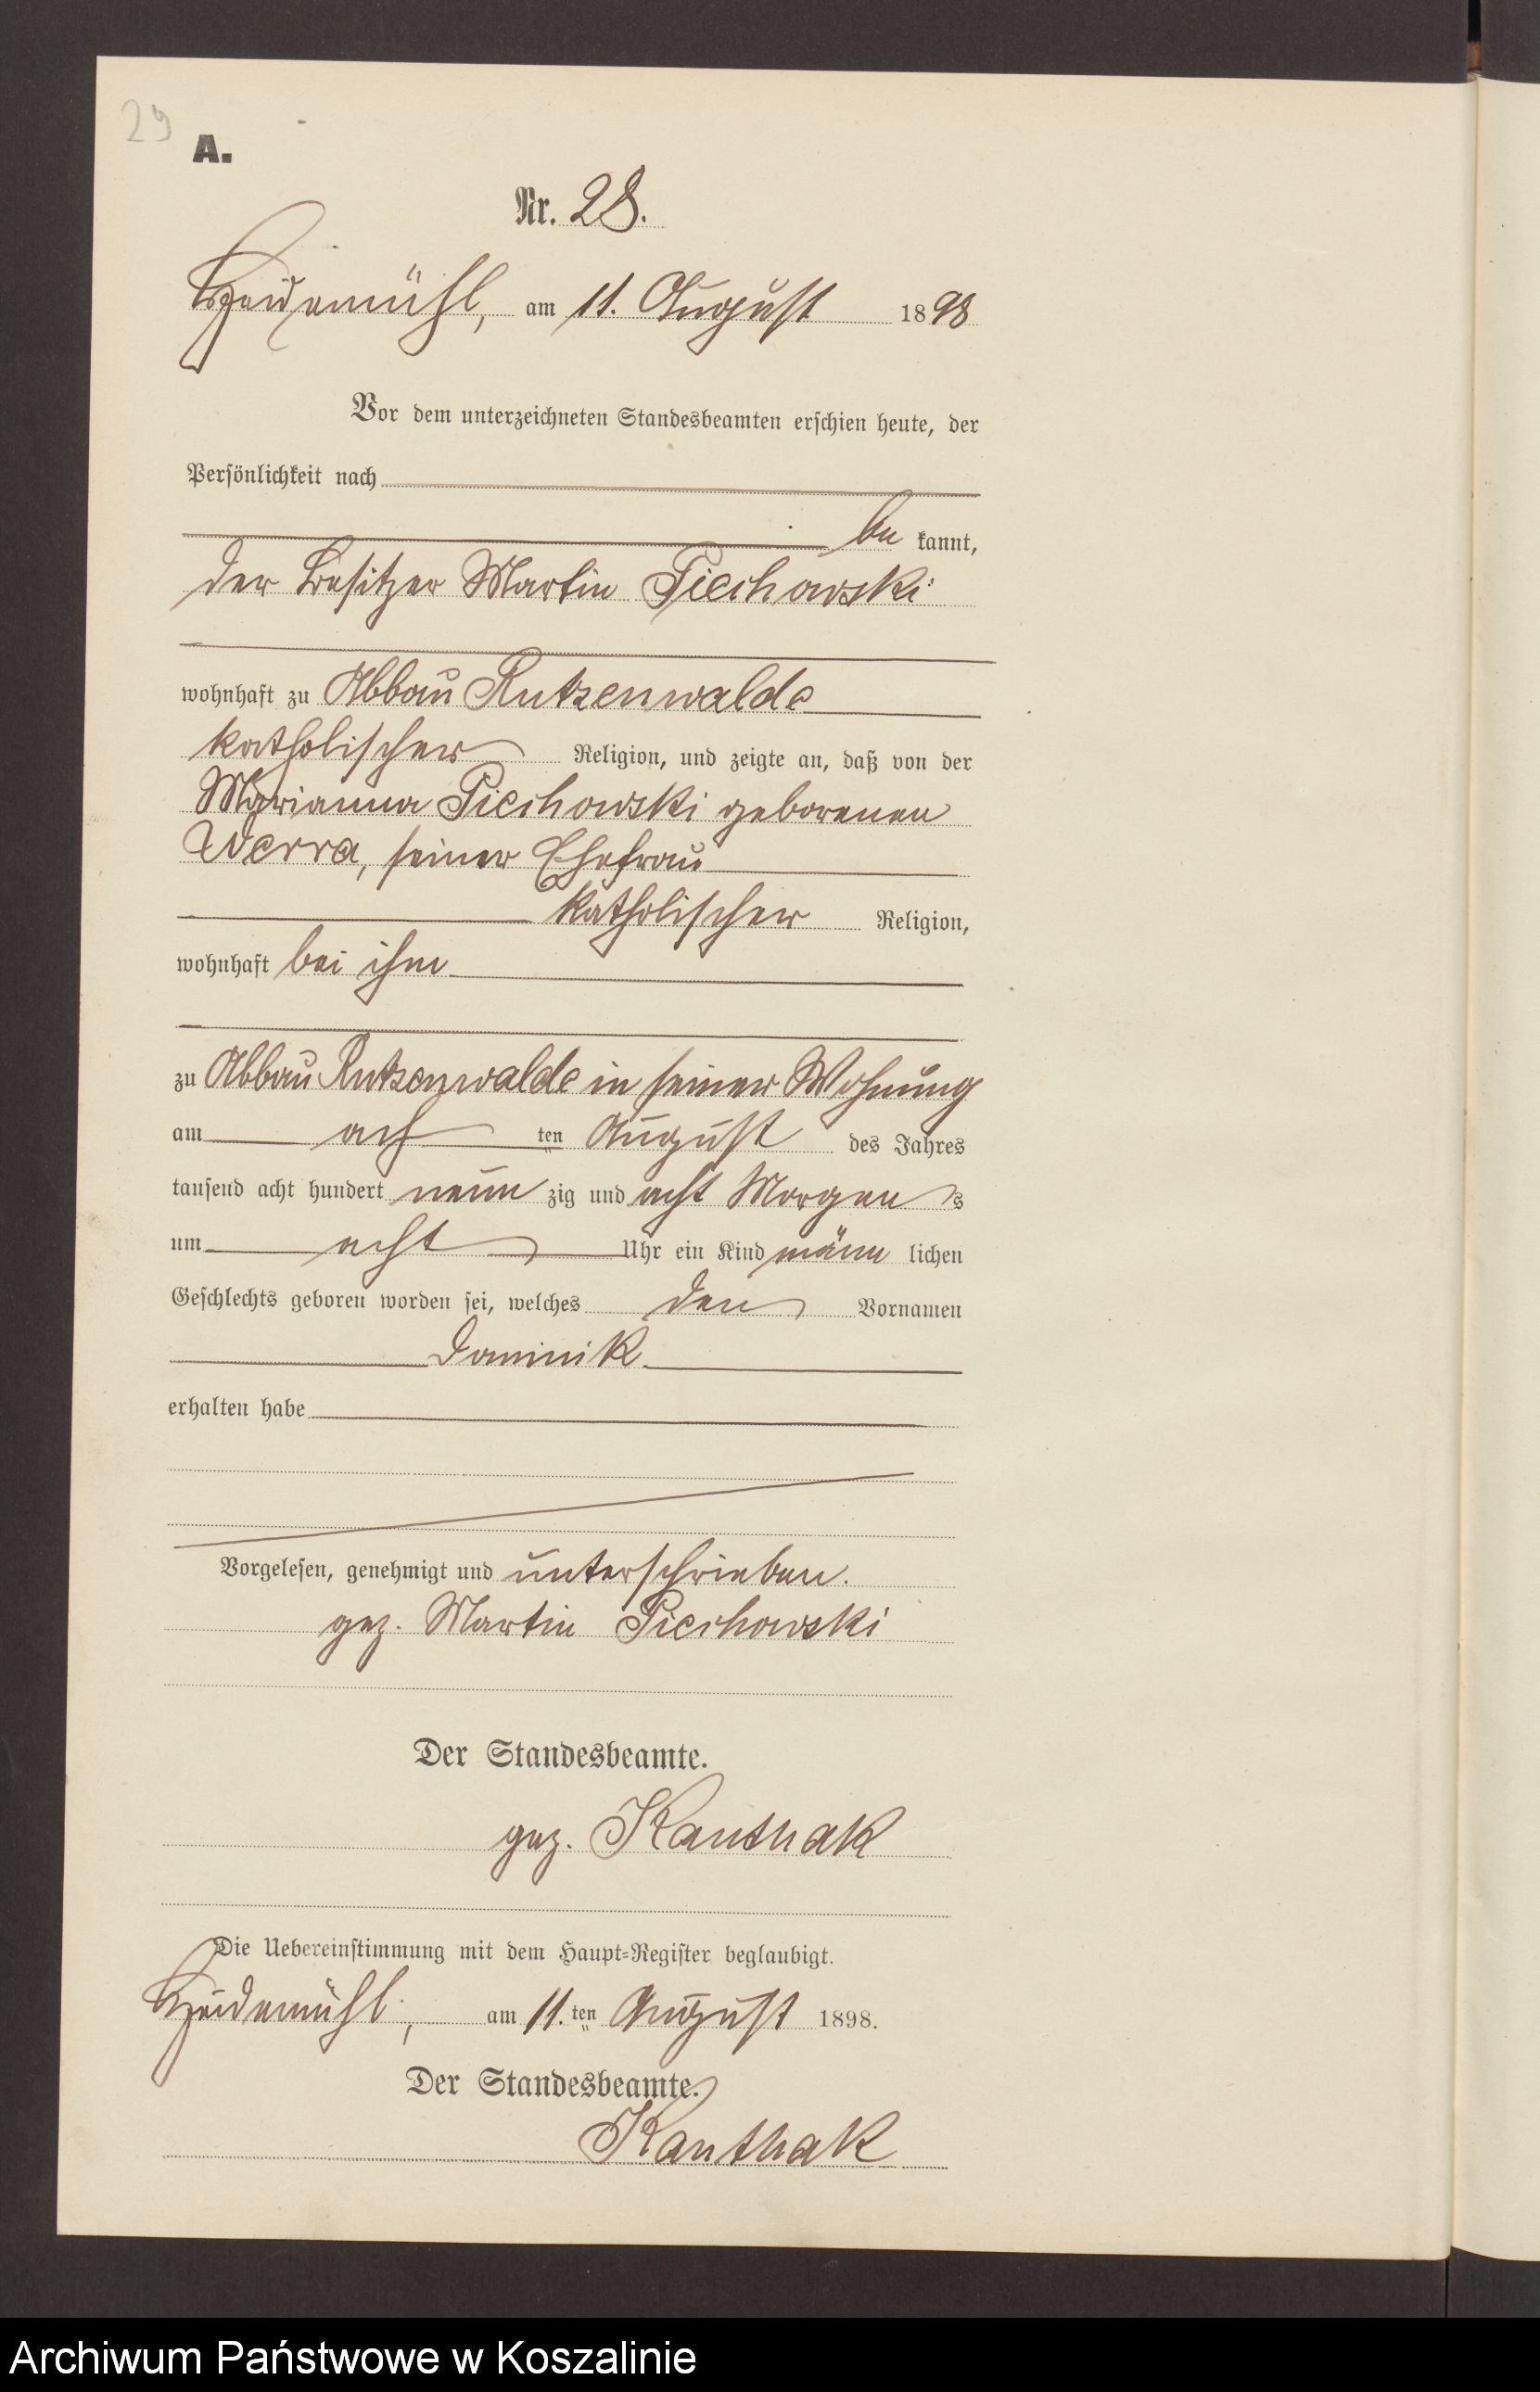 29
A.
Nr. 28.
Heidemühl, am 11. August 1898
Vor dem unterzeichneten Standesbeamten erschien heute, der
Persönlichkeit nach
be kannt,
der Besitzer Martin Piechowski
wohnhaft zu Abbau Rutzenwalde
katholischer Religion, und zeigte an, daß von der
Marianna Piechowski geborenen
Werra, seiner Ehefrau
katholischer Religion,
wohnhaft bei ihm
zu Abbau Rutzenwalde in seiner Wohnung
am ach ten August des Jahres
tausend acht hundert neun zig und acht Morgens
um acht Uhr ein Kind männ lichen
Geschlechts geboren worden sei, welches den Vornamen
Dominik
erhalten habe
Vorgelesen, genehmigt und unterschrieben.
gez. Martin Piechowski
Der Standesbeamte.
gez. Kanthak
Die Uebereinstimmung mit dem Haupt=Register beglaubigt.
Heidemühl, am 11. ten August 1898.
Der Standesbeamte.
Kanthak
Archiwum Państwowe w Koszalinie